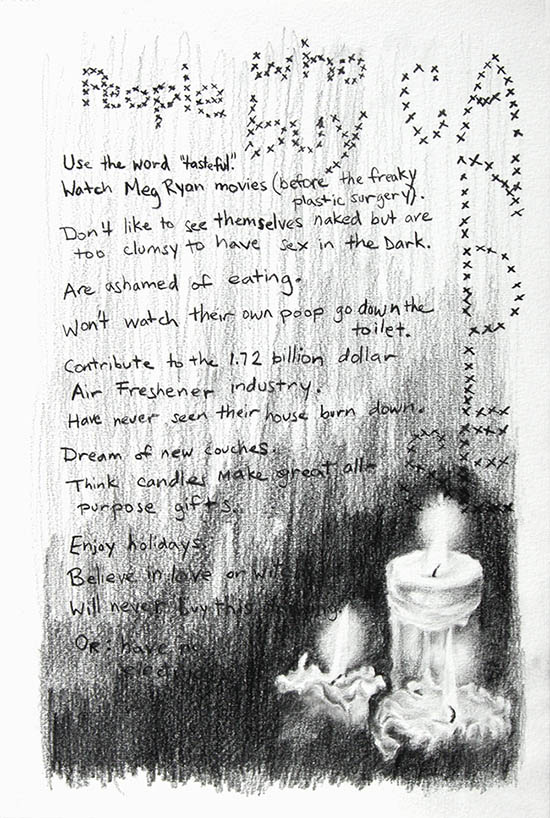 People who
buy
CANDLES
Use the word "tasteful."
Watch Meg Ryan movies (before the freaky
plastic surgery).
Don't like to see themselves naked but are
too clumsy to have sex in the Dark.
Are ashamed of eating.
Won't watch their own poop go down the
toilet.
Contribute to the 1.72 billion dollar
Air Freshener industry.
Have never seen their house burn down.
Dream of new couches.
Think candles make great all-
purpose gifts.
Enjoy holidays.
Believe in love or
Will never buy this
OR: have no